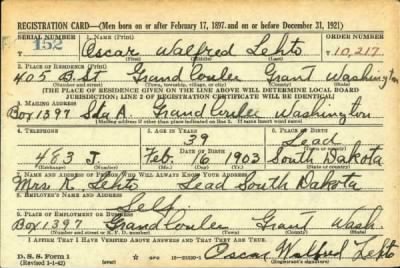 REGISTRATION CARD—(Men born on or after February 17, 1897, and on or before December 31, 1921)
SERIAL NUMBER 1. NAME (Print) ORDER NUMBER
152 Oscar Walfred Lehto 10,217
(First) (Middle) (Last)
2. PLACE OF RESIDENCE (Print)
405 B. St Grand Coulee Grant Washington
(Number and street) (Town, township, village, or city) (County) (State)
[THE PLACE OF RESIDENCE GIVEN ON THE LINE ABOVE WILL DETERMINE LOCAL BOARD
JURISDICTION; LINE 2 OF REGISTRATION CERTIFICATE WILL BE IDENTICAL]
3. MAILING ADDRESS
Box 1397 Sta A. Grand Coulee Washington
[Mailing address if other than place indicated on line 2. If same insert word same]
4. TELEPHONE 5. AGE IN YEARS 6. PLACE OF BIRTH
39 Lead
DATE OF BIRTH
483 J Feb. 16 1903 South Dakota
(Exchange) (Number) (Mo.) (Day) (Yr.) (State or country)
7. NAME AND ADDRESS OF PERSON WHO WILL ALWAYS KNOW YOUR ADDRESS
Mrs. K. Lehto Lead South Dakota
8. EMPLOYER'S NAME AND ADDRESS
Self.
9. PLACE OF EMPLOYMENT OR BUSINESS
Box 1397 Grand Coulee Grant Wash.
(Number and street or R. F. D. number) (Town) (County) (State)
I AFFIRM THAT I HAVE VERIFIED ABOVE ANSWERS AND THAT THEY ARE TRUE.
D. S. S. Form 1
(Revised 1-1-42) GPO Oscar Walfred Lehto